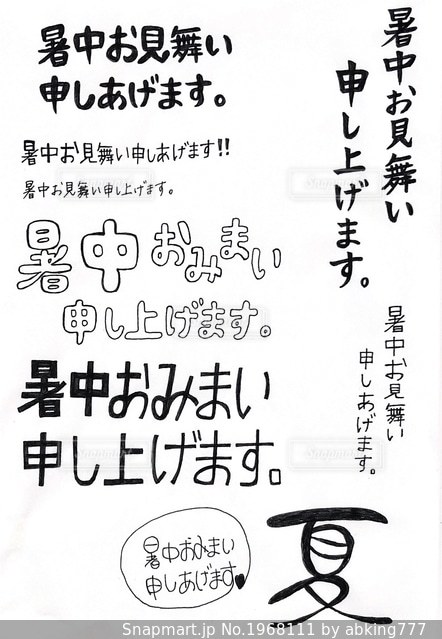 暑中お見舞い
申しあげます。
暑中お見舞い申しあげます!!
暑中お見舞い申し上げます。
暑中おみまい
申し上げます。
暑中おみまい
申し上げます。
暑中おみまい
申しあげます
暑中お見舞い
申し上げます。
暑中お見舞い
申しあげます。
夏
Snapmart.jp No.1968111 by abking777